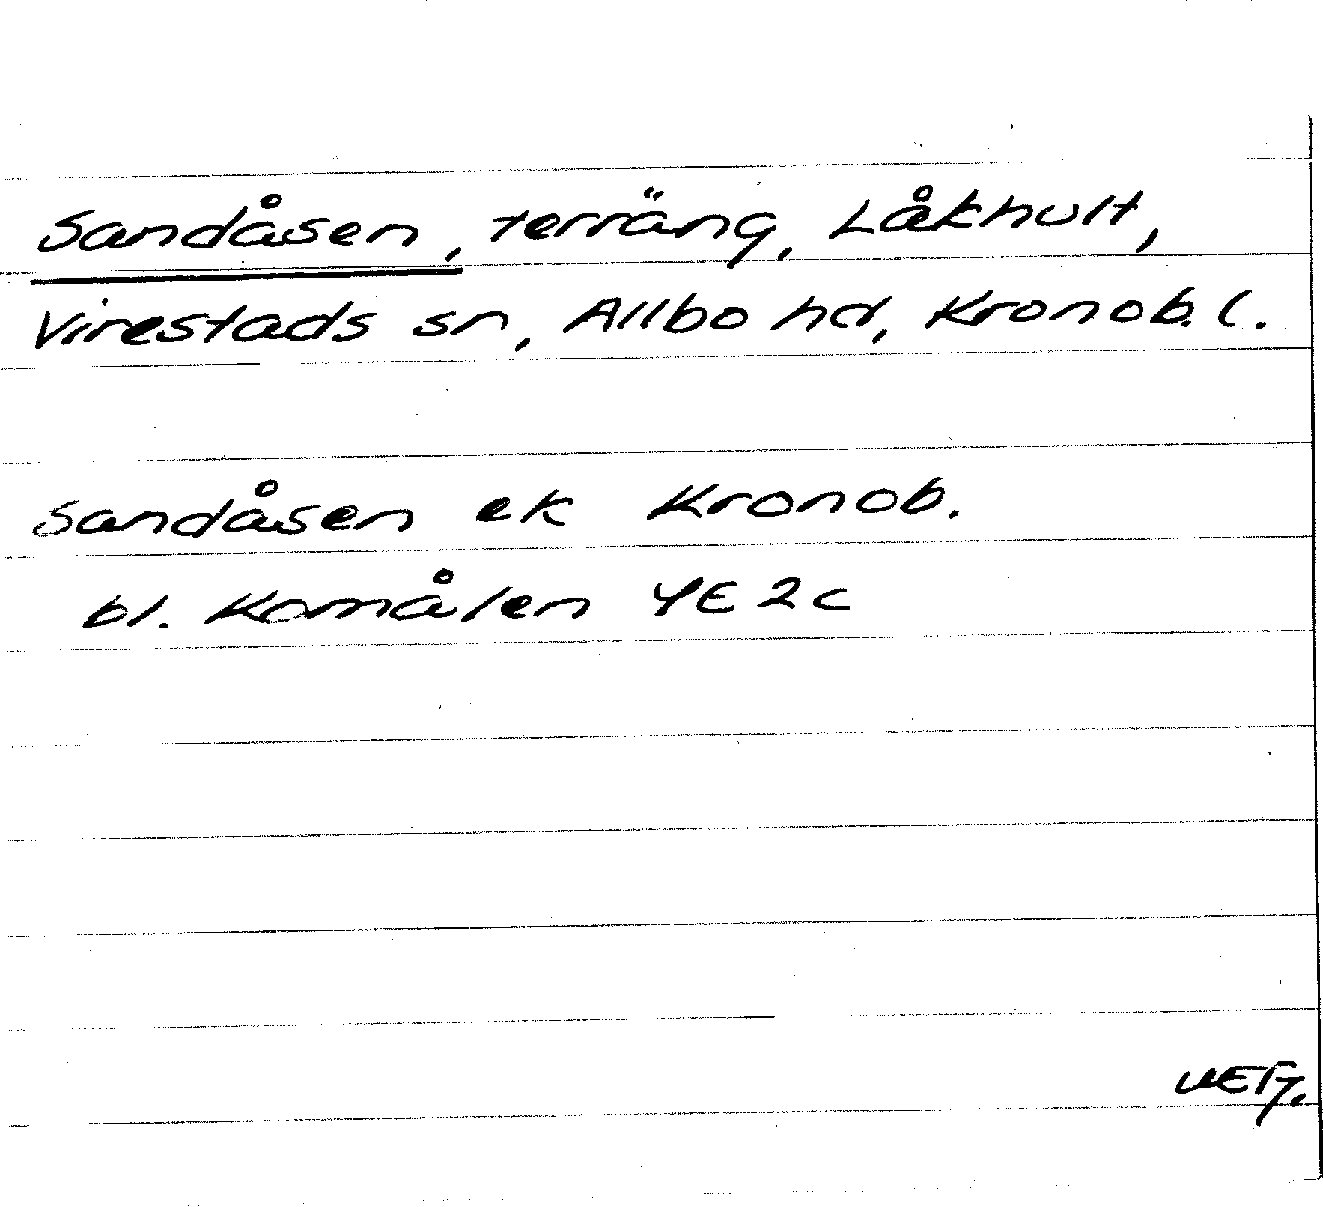 Sandåsen, terräng, Låkhult,
Virestads sn, Allbo hd, Kronob. l.
Sandåsen ek Kronob.
bl. Komålen 4E 2c